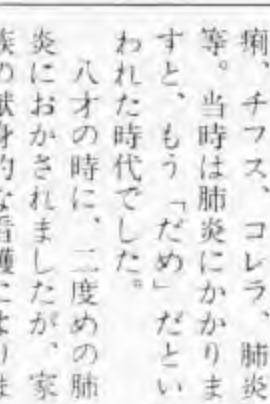 痢、チフス、コレラ、肺炎
等。当時は肺炎にかかりま
すと、もう「だめ」だとい
われた時代でした。
八才の時に、二度めの肺
炎におかされましたが、家
族の献身的な看護によりま